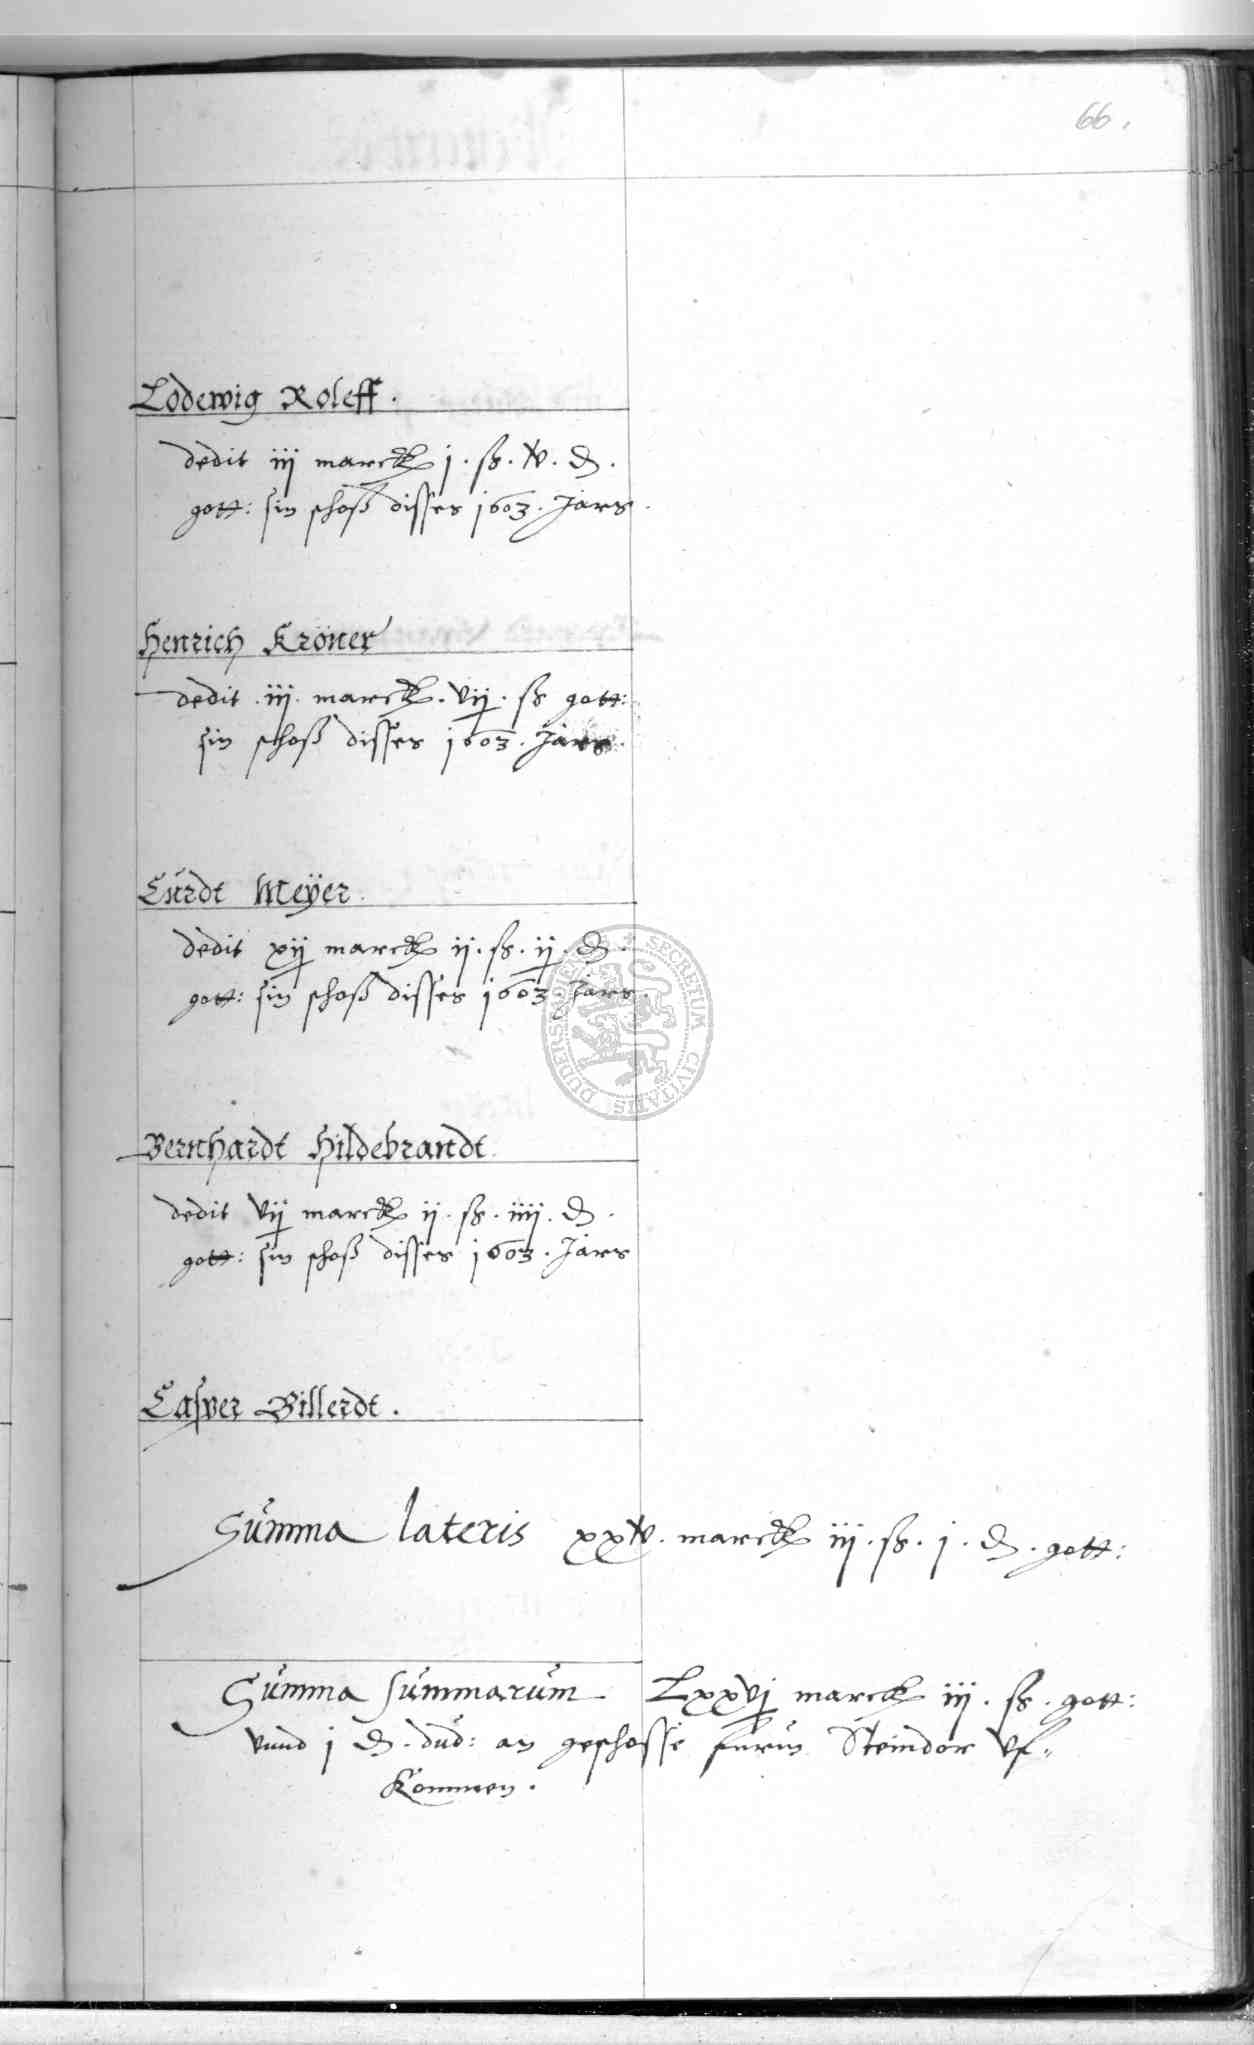 66.
Lodewig Roleff.
dedit iij marck j. ß. v. d.
gott: sin schoß disses 1603. Jars.
Henrich Kröner
dedit. iij. marck. vij. ß gott:
sin schoß disses 1603. Jars.
Curdt Meÿer.
dedit xij marck ij. ß. ij. d.
gott: sin schoß disses 1603 Jars.
Bernhardt Hildebrandt.
dedit vij marck ij. ß. iiij. d.
gott: sin schoß disses 1603. Jars
Casper Billerdt.
Summa lateris xxv. marck iij. ß. j. d. gott:
Summa summarum Lxxvj marck iij. ß. gott:
vnnd j d. dud: an geschosse furm Steindor vf-
kommen.
SECRETUM CIVITATIS DUDERSTADENSIS